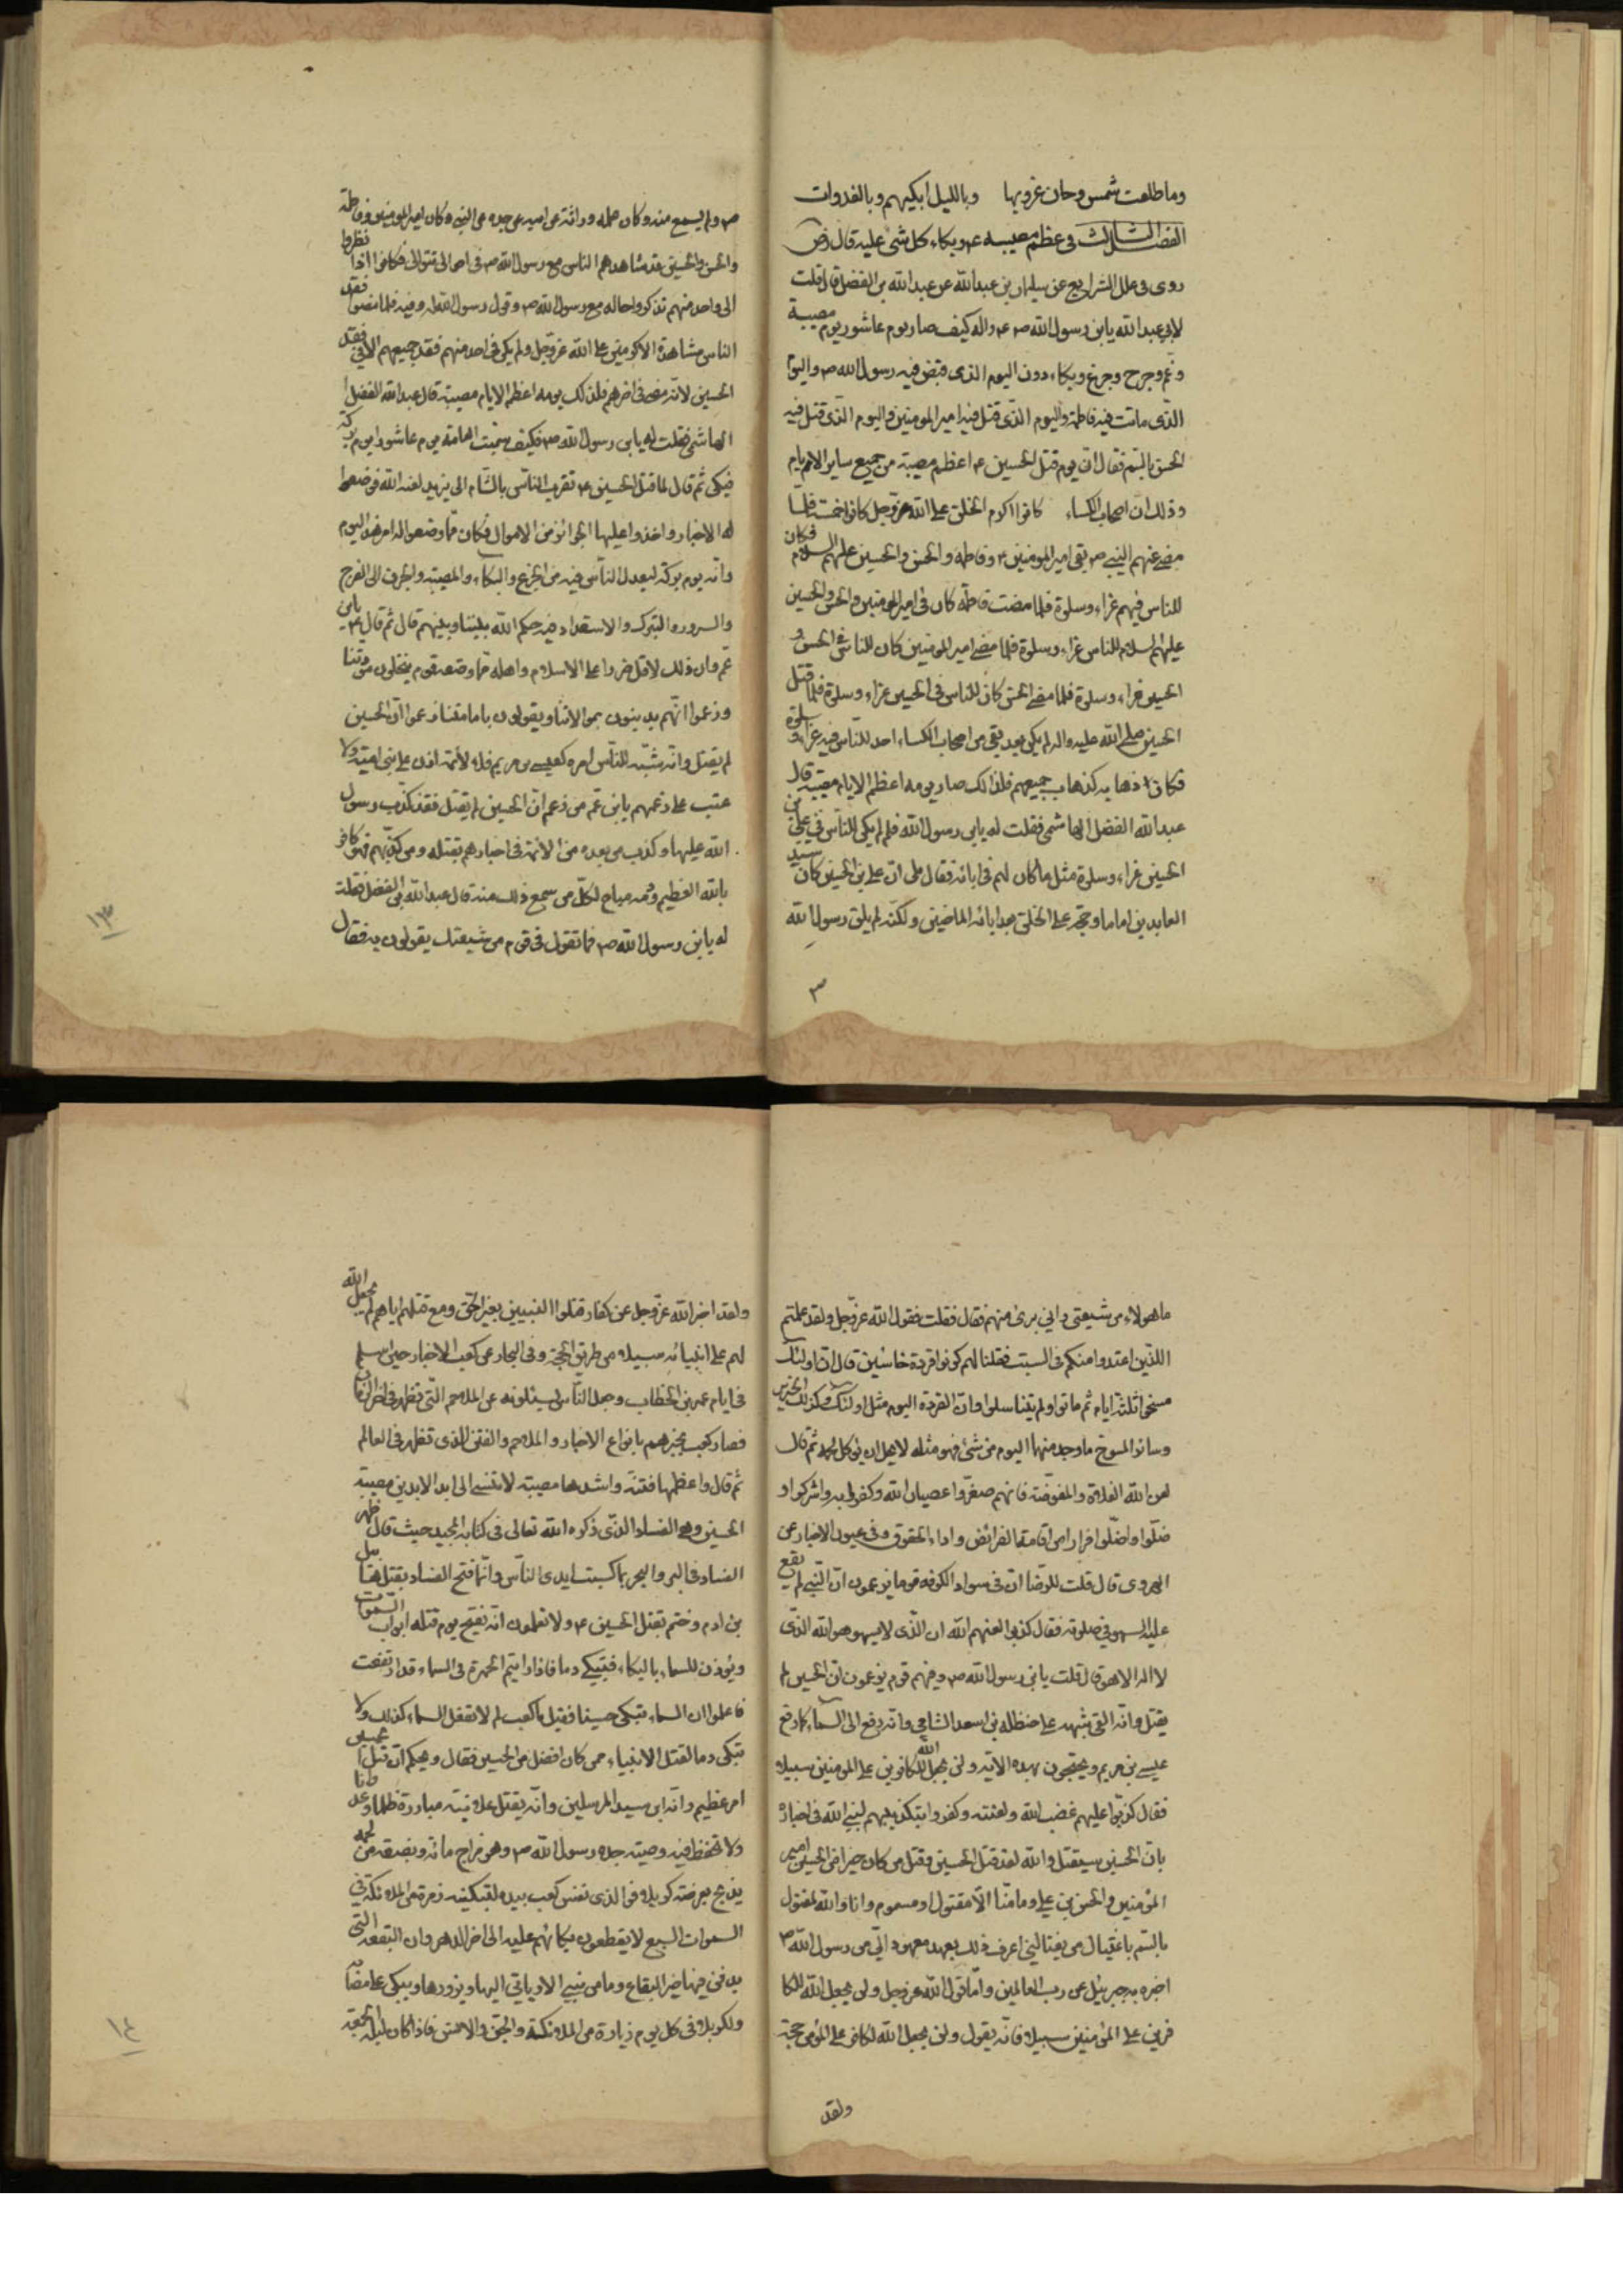 وما طلعت شمس وحان غروبها وبالليل ابكيهم وبالغدوات
الفصل الثالث فى عظم مصيبته ع وبكاء كل شئ عليه قال
روى فى علل الشرايع عن سليمان بن عبدالله عن عبدالله بن الفضل قال قلت
لابي عبدالله يابن رسول الله ص ع واله كيف صار يوم عاشور يوم مصيبة
وغم وجرح وجزع وبكاء دون اليوم الذى قبض فيه رسول الله ص واليوم
الذى ماتت فيه فاطمة واليوم الذى قتل فيه امير المومنين واليوم الذى قتل فيه
الحسن بالسم فقال ان يوم قتل الحسين ع اعظم مصيبة من جميع ساير الايام
وذلك ان اصحاب الكساء كانوا اكرم الخلق على الله عز وجل كانوا خمسة فلما
مضى عنهم النبي ص بقى امير المومنين ع وفاطمه والحسن والحسين عليهم السلام فكان
للناس فيهم عزاء وسلوة فلما مضت فاطمة كان فى امير المومنين والحسن والحسين
عليهم السلام للناس عزاء وسلوة فلما مضى امير المومنين كان للناس فى الحسن و
الحسين عزاء وسلوة فلما مضى الحسن كان للناس فى الحسين عزاء وسلوة فلما قتل
الحسين صلى الله عليه واله لم يكن بعد بقى من اصحاب الكساء احد للناس فيه عزاء وسلوة
فكان ذهابه كذهاب جميعهم فلذالك صار يومه اعظم الايام مصيبة قال
عبدالله الفضل الهاشمى فقلت له يابن رسول الله فلم لم يكن للناس فى علي بن
الحسين عزاء وسلوة مثل ما كان لهم فى ابائه فقال بلى ان على بن الحسين كان سيد
العابدين اماما وحجة على الخلق بعد ابائه الماضين ولكنه لم يلق رسول الله
ص ولم يسمع منه وكان علمه وراثة عن ابيه عن جده عن النبى ص وكان امير المومنين وفاطمة
والحسن والحسين قد شاهدهم الناس مع رسول الله ص فى احوالى تتوالى فكانوا اذا نظروا
الى واحد منهم تذكروا حاله مع رسول الله ص وقول رسول الله له وفيه فلما مضوا فقد
الناس مشاهدة الاكرمين على الله عز وجل ولم يكن فى احد منهم فقد جميعهم الا فى فقد
الحسين لانه مضى فى اخرهم فلذلك يومه اعظم الايام مصيبة قال عبدالله الفضل
الهاشمى فقلت له يابن رسول الله ص فكيف سمت العامة يوم عاشورا يوم بركة
فبكى ثم قال لما قتل الحسين ع تقرب الناس بالشام الى يزيد لعنه الله فوضعوا
له الاخبار واخذوا عليها الجوائز من الاموال فكان مما وضعوا له امر هذا اليوم
وانه يوم بركة ليعدل الناس فيه من الجزع والبكاء والمصيبة والحزن الى الفرح
والسرور والتبرك والاستعداد فيه حكم الله بيننا وبينهم قال ثم قال ع يابن
عم وان ذلك لاقل ضررا على الاسلام واهله مما وضعه قوم ينتحلون مودتنا
وزعموا انهم يدينون بموالاتنا ويقولون بامامتنا زعموا ان الحسين
لم يقتل وانه شبه للناس امره كعيسى بن مريم فلا لائمة اذن على بنى امية ولا
عتب على زعمهم يابن عم من زعم ان الحسين لم يقتل فقد كذب رسول
الله عليها وكذب من بعده من الائمة فى اخبارهم بقتله ومن كذبهم فهو كافر
بالله العظيم ودمه مباح لكل من سمع ذلك منه قال عبدالله بن الفضل فقلت
له يابن رسول الله ص فما تقول فى قوم من شيعتك يقولون به فقال
١٣
ما هولاء من شيعتى واني برئ منهم فقال فقلت فقول الله عز وجل ولقد علمتم
اللذين اعتدوا منكم فى السبت فقلنا لهم كونوا قردة خاسئين قال ان اولئك
مسخوا ثلثة ايام ثم ماتوا ولم يتناسلوا وان القردة اليوم مثل اولئك وكذلك الخنزير
وسائر المسوخ ما وجد منها اليوم من شئ فهو مثله لا يحل ان يوكل لحمه ثم قال
لعن الله الغلاة والمفوضة فانهم صغروا عصيان الله وكفروا به واشركوا و
ضلوا واضلوا فرارا من اقامة الفرائض واداء الحقوق وفى عيون الاخبار عن
الهروى قال قلت للرضا ان فى سواد الكوفه قوما يزعمون ان النبي لم يقع
عليه السهو فى صلوته فقال كذبوا لعنهم الله ان الذى لا يسهو هو الله الذى
لا اله الا هو قال قلت يابن رسول الله ص وفيهم قوم يزعمون ان الحسين لم
يقتل وانه القى شبهه على حنظلة بن اسعد الشامى وانه رفع الى السماء كما رفع
عيسى بن مريم ويحتجون بهذه الاية ولن يجعل الله للكافرين على المومنين سبيلا
فقال كذبوا عليهم غضب الله ولعنته وكفروا بتكذيبهم لنبى الله فى اخباره
بان الحسين سيقتل والله لقد قتل الحسين وقتل من كان خيرا من الحسين امير
المومنين والحسن بن علي وما منا الا مقتول او مسموم وانا والله لمقتول
بالسم باغتيال من يغتالنى اعرف ذلك بعهد معهود الي من رسول الله ص
اخبره به جبرئيل عن رب العالمين واما قول الله عز وجل ولن يجعل الله للكا
فرين على المؤمنين سبيلا فانه يقول ولن يجعل الله لكافر على المؤمن حجة
ولقد
ولقد اخبر الله عز وجل عن كفار قتلوا النبيين بغير الحق ومع قتلهم اياهم لم يجعل الله
لهم على انبيائه سبيلا من طريق الحجة وفى البحار عن كعب الاحبار حين اسلم
فى ايام عمر بن الخطاب وجعل الناس يسئلونه عن الملاحم التى تظهر فى اخر الزمان
فصار كعب يخبرهم بانواع الاخبار والملاحم والفتن الذى تظهر فى العالم
ثم قال واعظمها فتنة واشدها مصيبة لا تنسى الى ابد الابدين مصيبة
الحسين وهى الفساد الذى ذكره الله تعالى فى كتابه المجيد حيث قال ظهر
الفساد فى البر والبحر بما كسبت ايدى الناس وانما فتح الفساد بقتل هابيل
بن ادم وختم بقتل الحسين ع ولا تعلمون انه تفتح يوم قتله ابواب السموات
ويؤذن للسماء بالبكاء فتبكى دما فاذا رايتم الحمرة فى السماء قد ارتفعت
فاعلموا ان السماء تبكى حسينا فقيل ياكعب لم لا تفعل السماء كذلك ولا
تبكى دما لقتل الانبياء ممن كان افضل من الحسين فقال ويحكم ان قتل الحسين
امر عظيم وانه ابن سيد المرسلين وانه يقتل علانية مبارزة ظلما وعدوانا
ولا تحفظ فيه وصية جده رسول الله ص وهو مزاج مائه وبضعة من لحمه
يذبح بعرصة كربلا فوالذى نفس كعب بيده لتبكيه زمرة من الملائكة فى
السموات السبع لا يقطعون بكائهم عليه الى اخر الدهر وان البقعة التى
يدفن فيها خير البقاع وما من نبي الا وياتى اليها ويزورها ويبكى على مصابه
ولكربلا فى كل يوم زيارة من الملائكة والجن والانس فاذا كان ليلة الجمعة
١٤